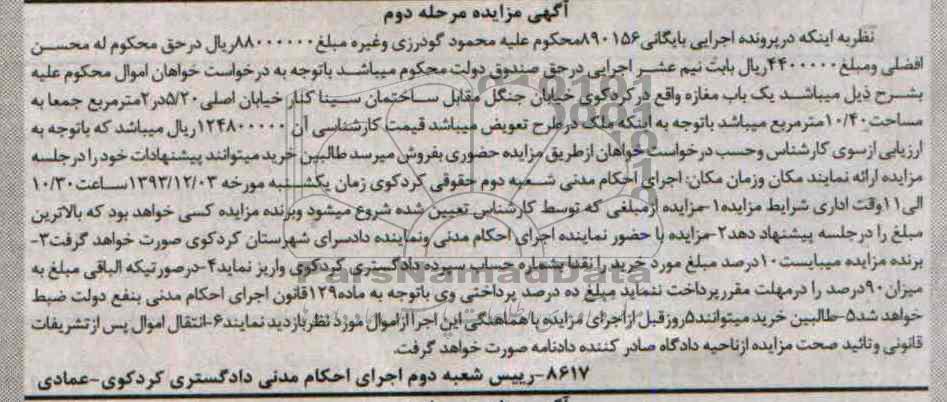 آگهی مزایده مرحله دوم
نظر به اینکه در پرونده اجرایی بایگانی ۸۹۰۱۵۶ محکوم علیه محمود گودرزی و غیره مبلغ ۸۸۰۰۰۰۰۰ ریال در حق محکوم له محسن
افضلی و مبلغ ۴۴۰۰۰۰۰ ریال بابت نیم عشر اجرایی در حق صندوق دولت محکوم میباشد با توجه به درخواست خواهان اموال محکوم علیه
بشرح ذیل میباشد یک باب مغازه واقع در کردکوی خیابان جنگل مقابل ساختمان سینا کنار خیابان اصلی ۵/۲۰ در ۲ مترمربع جمعا به
مساحت ۱۰/۴۰ مترمربع میباشد با توجه به اینکه ملک در طرح تعویض میباشد قیمت کارشناسی آن ۱۲۴۸۰۰۰۰۰ ریال میباشد که با توجه به
ارزیابی از سوی کارشناس و حسب درخواست خواهان از طریق مزایده حضوری بفروش میرسد طالبین خرید میتوانند پیشنهادات خود را در جلسه
مزایده ارائه نمایند مکان و زمان مکان: اجرای احکام مدنی شعبه دوم حقوقی کردکوی زمان یکشنبه مورخه ۱۳۹۳/۱۲/۰۳ ساعت ۱۰/۳۰
الی ۱۱ وقت اداری شرایط مزایده ۱-مزایده از مبلغی که توسط کارشناس تعیین شده شروع میشود و برنده مزایده کسی خواهد بود که بالاترین
مبلغ را در جلسه پیشنهاد دهد ۲-مزایده با حضور نماینده اجرای احکام مدنی و نماینده دادسرای شهرستان کردکوی صورت خواهد گرفت ۳-
برنده مزایده میبایست ۱۰ درصد مبلغ مورد خرید را نقدا بشماره حساب سپرده دادگستری کردکوی واریز نماید ۴-درصورتیکه الباقی مبلغ به
میزان ۹۰ درصد را در مهلت مقرر پرداخت ننماید مبلغ ده درصد پرداختی وی با توجه به ماده ۱۲۹ قانون اجرای احکام مدنی بنفع دولت ضبط
خواهد شد ۵-طالبین خرید میتوانند ۵ روز قبل از اجرای مزایده با هماهنگی این اجرا از اموال مورد نظر بازدید نمایند ۶-انتقال اموال پس از تشریفات
قانونی و تائید صحت مزایده از ناحیه دادگاه صادر کننده دادنامه صورت خواهد گرفت.
۸۶۱۷-رییس شعبه دوم اجرای احکام مدنی دادگستری کردکوی-عمادی
ParsNamadData